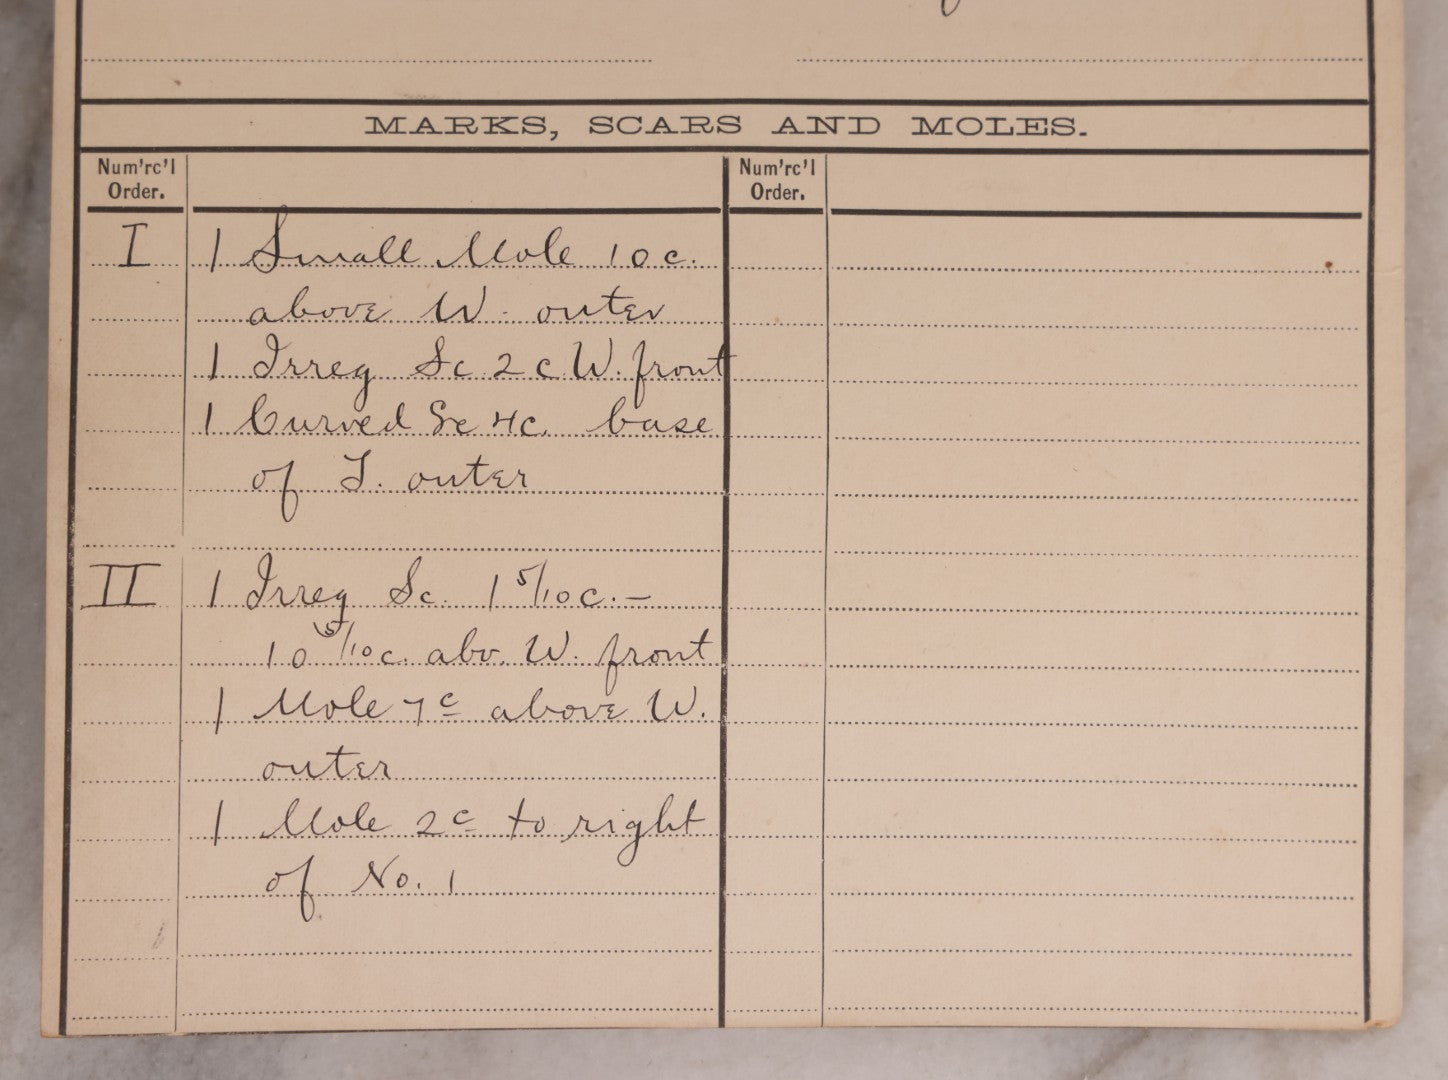 MARKS, SCARS AND MOLES.
Num'rc'l Order.
Num'rc'l Order.
I 1 Small Mole 10c.
above W. outer
1 Irreg Sc 2c W. front
1 Curved Sc 4c. base
of T. outer
II 1 Irreg Sc. 1 5/10c. —
10 5/10c. abv. W. front
1 Mole 7c above W.
outer
1 Mole 2c to right
of No. 1